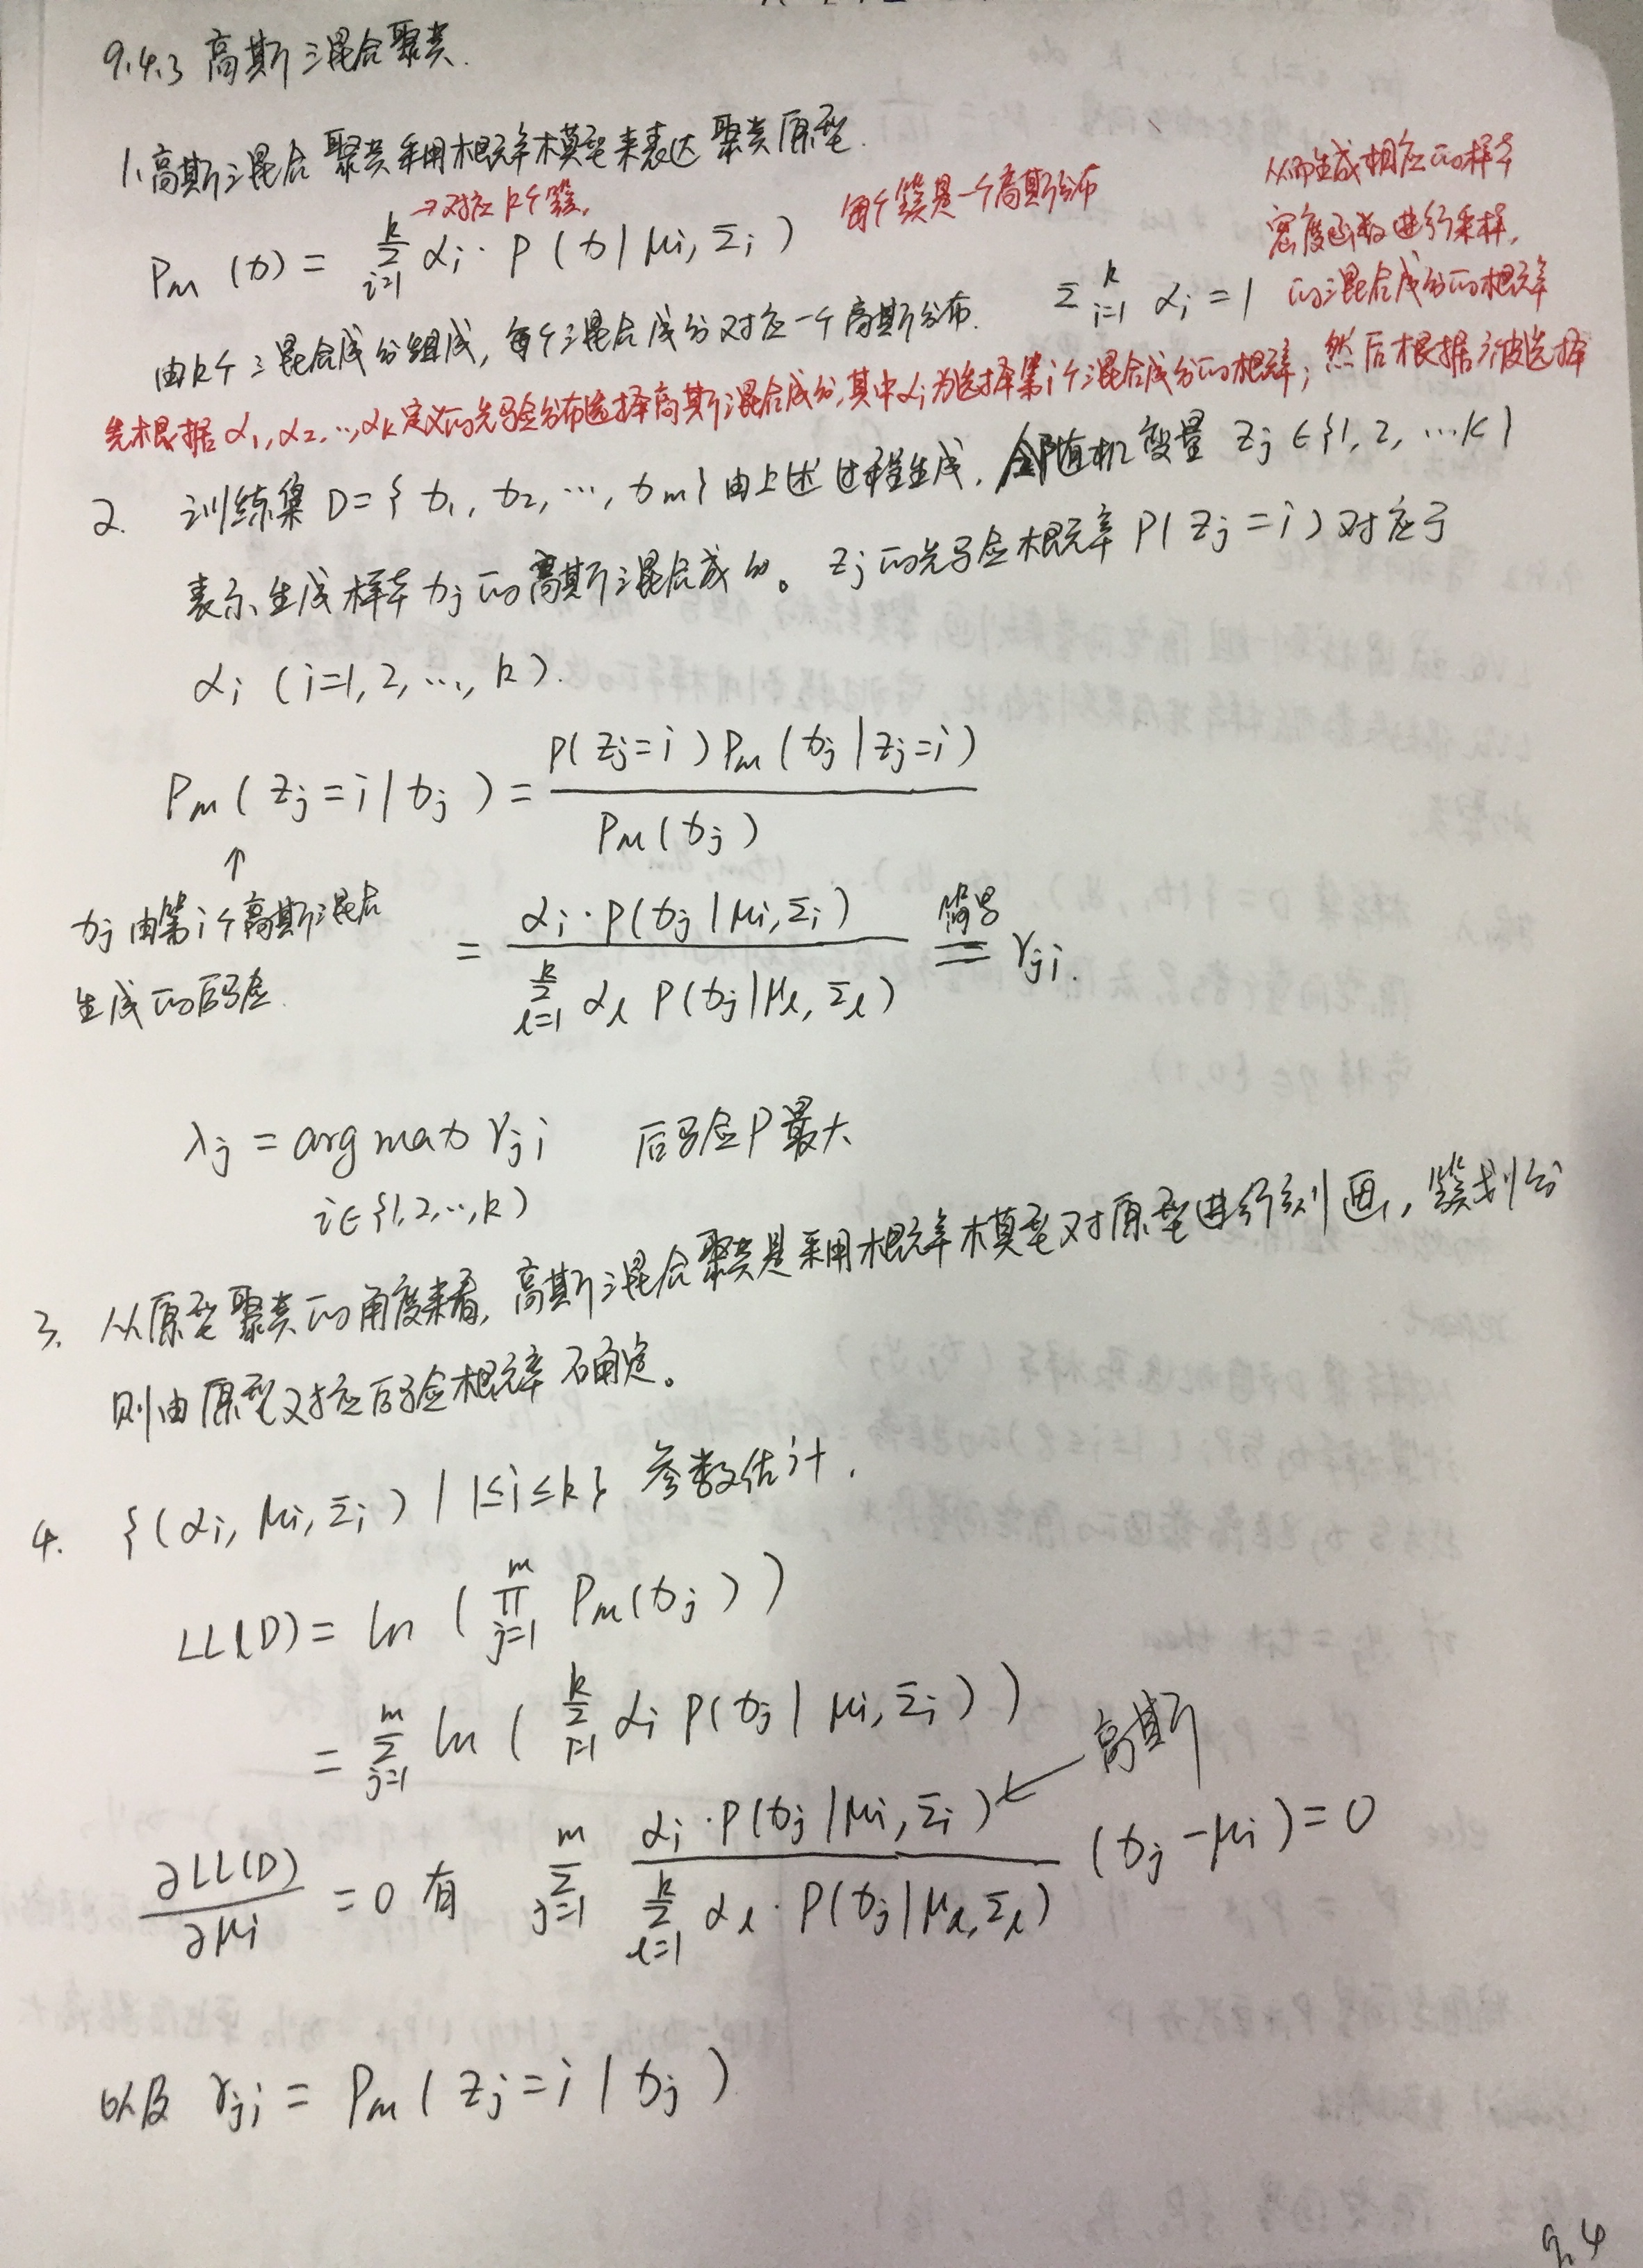 9.4.3 高斯混合聚类.
1. 高斯混合聚类采用概率模型来表达聚类原型.
→对应k个簇.
每个簇是一个高斯分布
P_M(x) = Σ_{i=1}^{k} α_i · P(x | μ_i, Σ_i)
由k个混合成分组成, 每个混合成分对应一个高斯分布. Σ_{i=1}^{k} α_i = 1
先根据α_1, α_2, …, α_k定义的先验分布选择高斯混合成分, 其中α_i为选择第i个混合成分的概率; 然后根据被选择
的混合成分的概率
密度函数进行采样,
从而生成相应的样本
2. 训练集 D = {x_1, x_2, …, x_m} 由上述过程生成, 令随机变量 z_j ∈ {1, 2, … k}
表示生成样本x_j的高斯混合成分。z_j的先验概率P(z_j = i)对应于
α_i (i=1, 2, …, k).
P_M(z_j = i | x_j) = P(z_j = i) P_M(x_j | z_j = i) / P_M(x_j)
↑
x_j由第i个高斯混合
生成的后验.
= α_i · P(x_j | μ_i, Σ_i) / Σ_{l=1}^{k} α_l P(x_j | μ_l, Σ_l) 简写 == γ_{ji}.
λ_j = arg max γ_{ji} 后验P最大
i∈{1, 2, …, k}
3. 从原型聚类的角度来看, 高斯混合聚类是采用概率模型对原型进行刻画, 簇划分
则由原型对应后验概率确定。
4. {(α_i, μ_i, Σ_i) | 1≤i≤k} 参数估计.
LL(D) = ln (∏_{j=1}^{m} P_M(x_j))
= Σ_{j=1}^{m} ln (Σ_{i=1}^{k} α_i P(x_j | μ_i, Σ_i))
高斯
∂LL(D)/∂μ_i = 0 有 Σ_{j=1}^{m} α_i · P(x_j | μ_i, Σ_i) / Σ_{l=1}^{k} α_l · P(x_j | μ_l, Σ_l) (x_j - μ_i) = 0
以及 γ_{ji} = P_M(z_j = i | x_j)
9.4